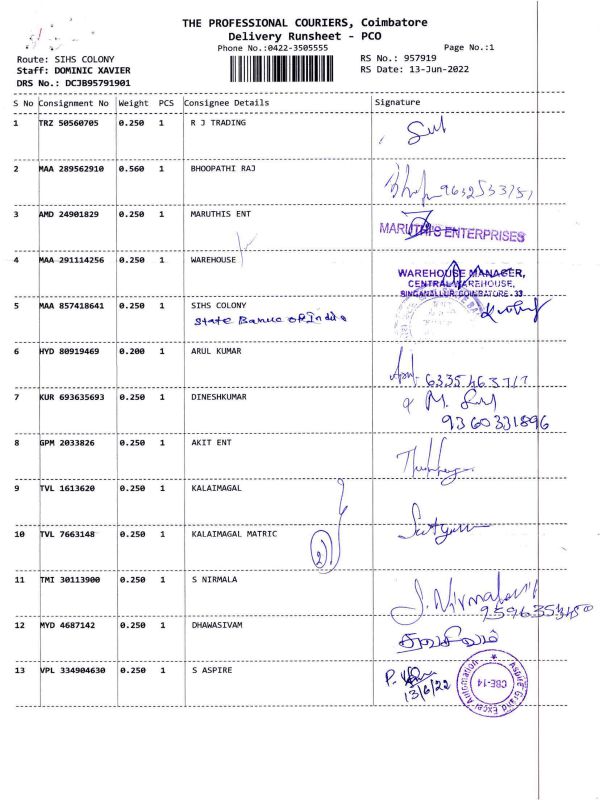 THE PROFESSIONAL COURIERS, Coimbatore
Delivery Runsheet - PCO
Phone No.:0422-3505555 Page No.:1
Route: SIHS COLONY RS No.: 957919
Staff: DOMINIC XAVIER RS Date: 13-Jun-2022
DRS No.: DCJB95791901
S No Consignment No Weight PCS Consignee Details Signature
1 TRZ 50560705 0.250 1 R J TRADING
2 MAA 289562910 0.560 1 BHOOPATHI RAJ
3 AMD 24901829 0.250 1 MARUTHIS ENT
MARUTHIS ENTERPRISES
4 MAA 291114256 0.250 1 WAREHOUSE
WAREHOUSE MANAGER,
CENTRAL WAREHOUSE,
SINGANALLUR, COIMBATORE - 33
5 MAA 857418641 0.250 1 SIHS COLONY
State Banuc of India
6 HYD 80919469 0.200 1 ARUL KUMAR
7 KUR 693635693 0.250 1 DINESHKUMAR
9360331896
8 GPM 2033826 0.250 1 AKIT ENT
9 TVL 1613620 0.250 1 KALAIMAGAL
10 TVL 7663148 0.250 1 KALAIMAGAL MATRIC
2
11 TMI 30113900 0.250 1 S NIRMALA
12 MYD 4687142 0.250 1 DHAWASIVAM
13 VPL 334904630 0.250 1 S ASPIRE
13/6/22
Aspire Grand Excel Automation
CBE-14